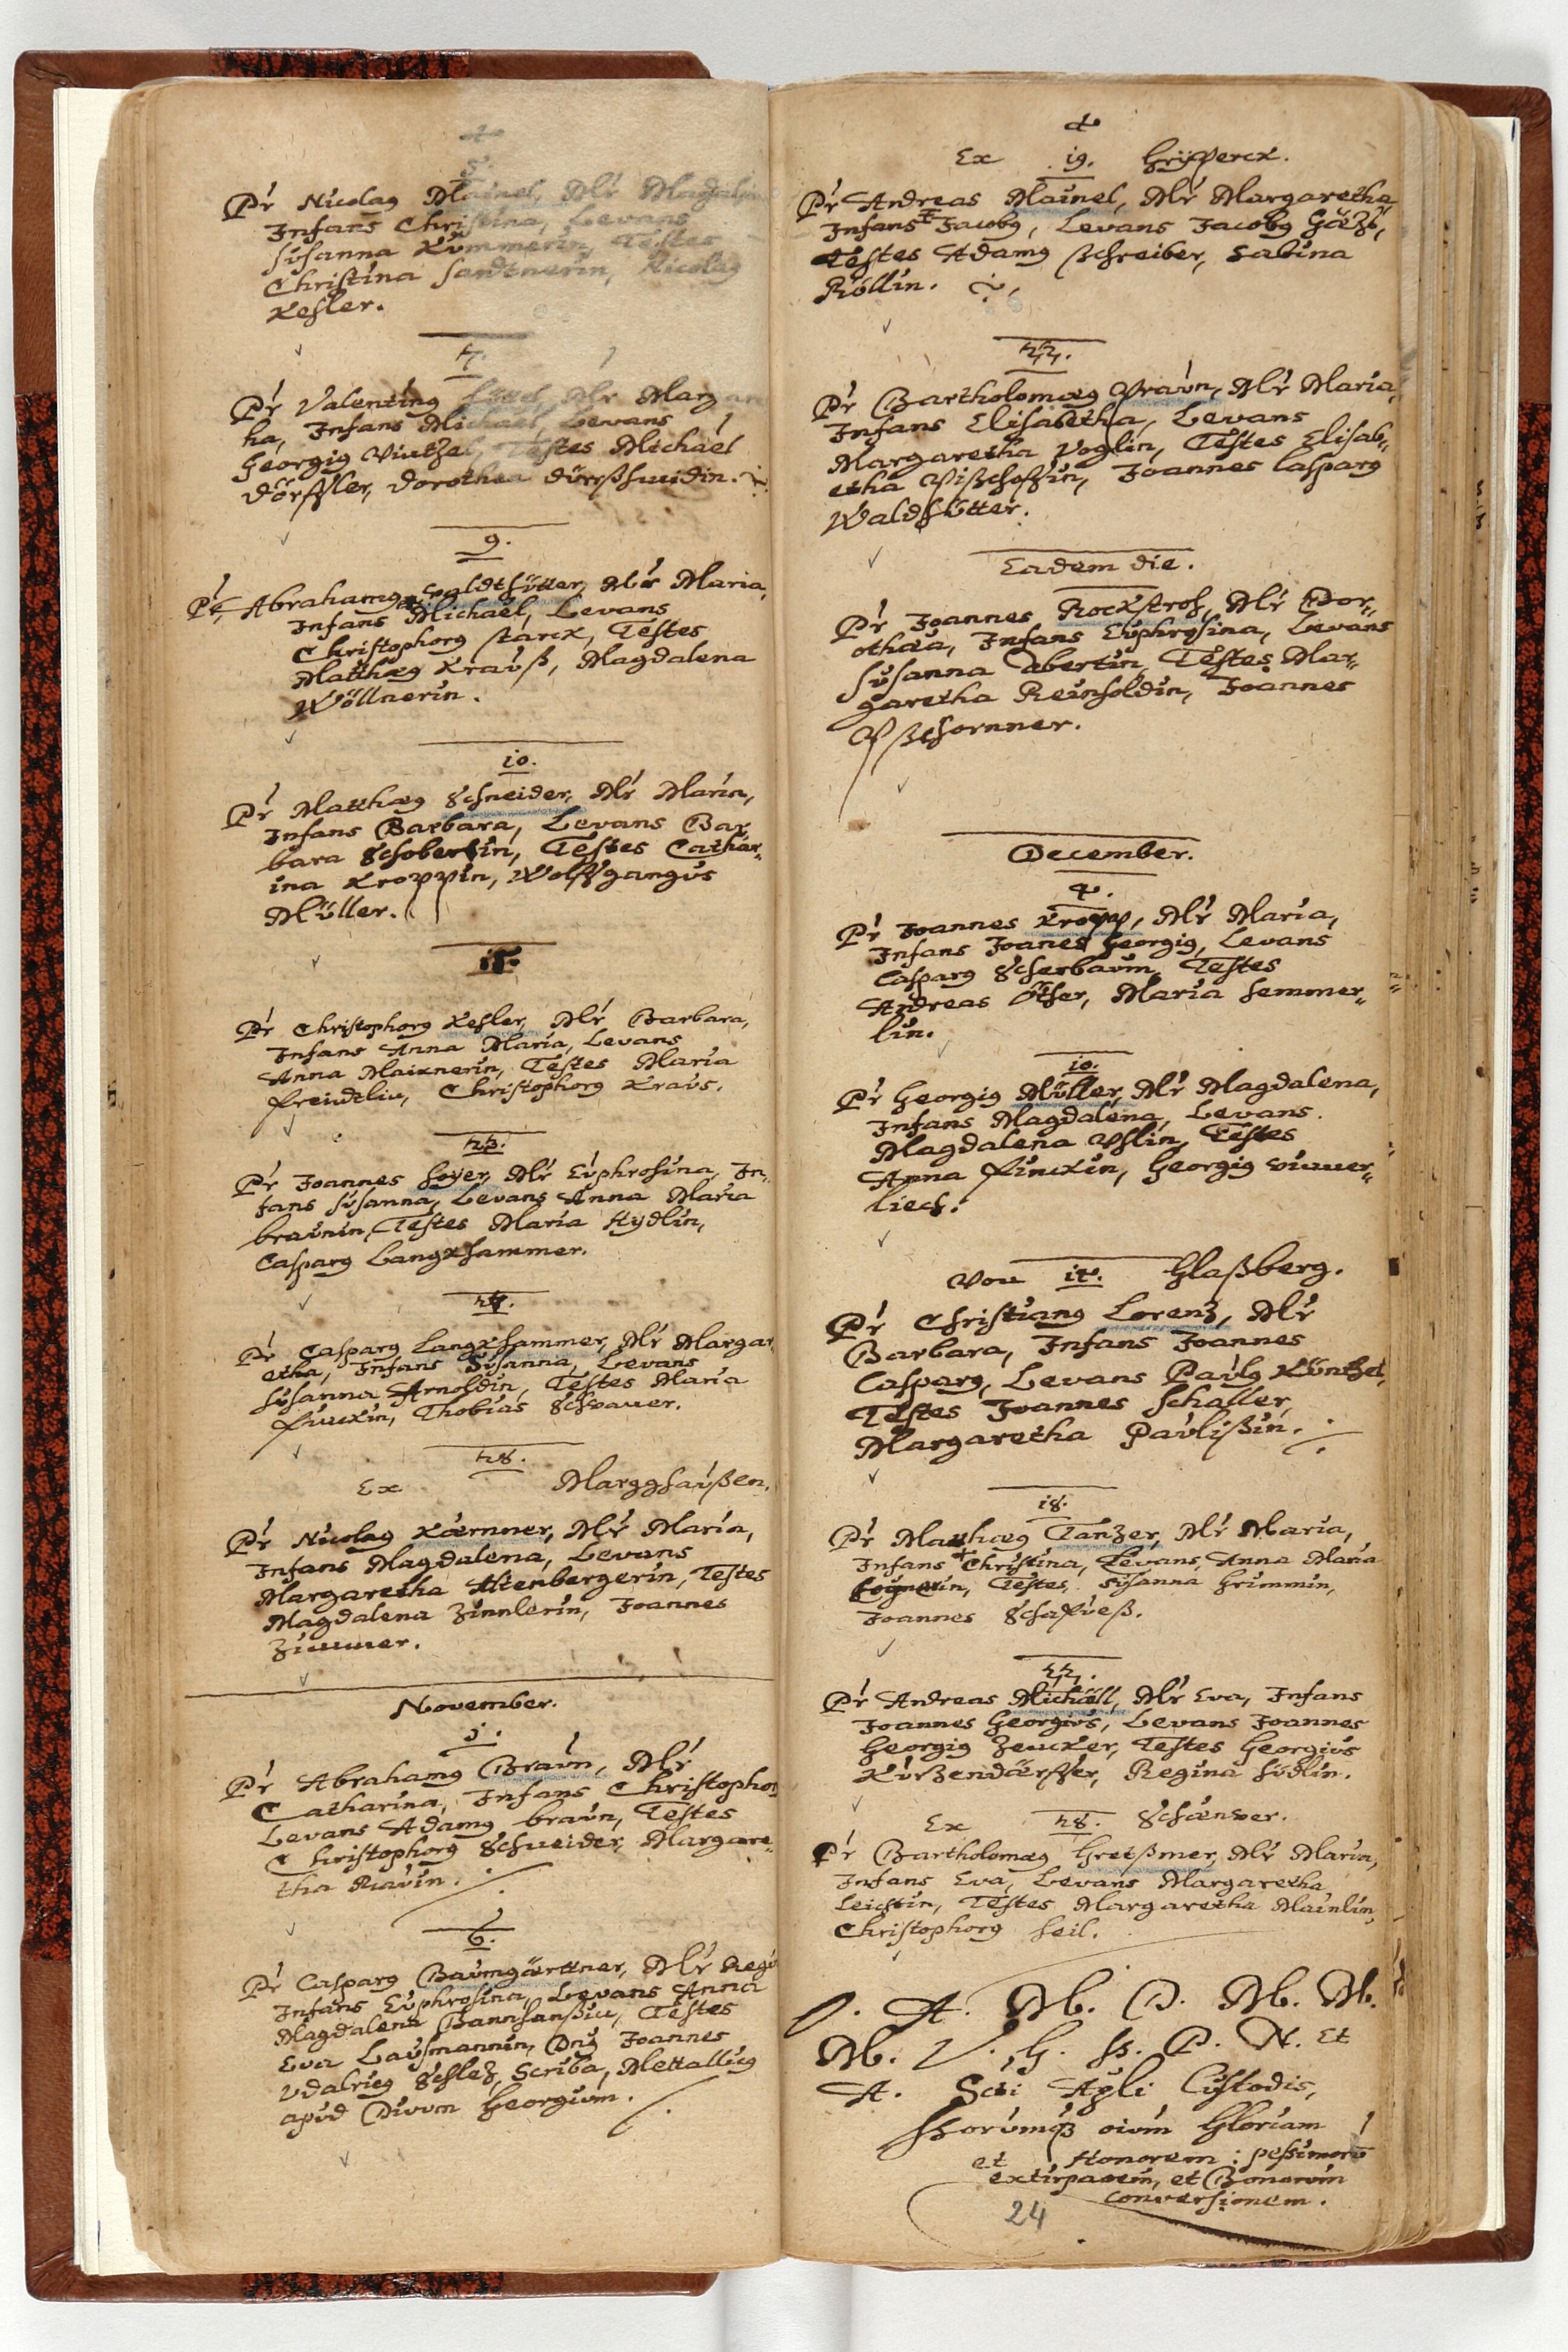 5.
Pr Nicolaus Mainel, Mr Magdalen
Infans Christina, Levans
Susanna Kümmerin, Testes
Christina Sandtnerin, Nicolaus
Kesler.
7.
Pr Valentinus Mr Margar
ha, Infans Michael, Levans
Georgius Testes Michael
Dörffler, Dorothea
9.
Pr Abrahamus Waldthütter, Mr Maria,
Infans Michael, Levans
Christophorus Starck, Testes
Matthæus Krauß, Magdalena
Wöllnerin.
io.
Pr Matthæus Schneider, Mr Maria,
Infans Barbara, Levans Bar
bara Schobertin, Testes Cathar„
ina Kroppin, Wolffgangus
Müller.
Pr Christophorus Kesler, Mr Barbara,
Infans Anna Maria, Levans
Anna Maixnerin, Testes Maria
Freindtlin, Christophorus Kraus.
23.
Pr Joannes Hoyer, Mr Euphrosina, In„
fans Susanna, Levans Anna Maria
braunin, Testes Maria Hydlin,
Casparus Langkhammer.
Pr Casparus Langkhammer, Mr Margar
etha, Infans Susanna, Levans
Susanna Arnoldin, Testes Maria
Finckin, Thobias
28.
Ex Margghaußen.
Pr Nicolaus Kærnner, Mr Maria,
Infans Magdalena, Levans
Margaretha Altenbergerin, Testes
Magdalena Zinnlerin, Joannes
Zimmer.
November.
j.
Pr Abrahamus Braun, Mr
Catharina, Infans Christophor
Levans Adamus braun, Testes
Christophorus Schneider, Margare„
tha Ravin.
6.
Pr Casparus Baumgärttner, Mr Regi
Infans Euphrosina, Levans Anna
Magdalena Testes
Eva Lausmannin, Dnus Joannes
Udalricus Schlez, Scriba, Mettallicus
apud Divum Georgium.
Ex i9. Griffperck.
Pr Andreas Mainel, Mr Margaretha,
Infans Jacobus, Levans Jacobus Götz,
Testes Adamus Schreiber, Sabina
Röllin.
22.
Pr Bartholomæus Praun, Mr Maria,
Infans Elisabetha, Levans
Margaretha Voglin, Testes Elisab„
etha Pischoffin, Joannes Casparus
Waldhütter.
Eadem die.
Pr Joannes Rockstroh, Mr Dor„
othæa, Infans Euphrosina, Levans
Susanna Abertin, Testes Mar„
garetha Reinholdin, Joannes
Pschornner.
December.
4.
Pr Joannes Kropp, Mr Maria,
Infans Joanes Georgius, Levans
Casparus Scherbaum, Testes
Andreas Öther, Maria Hemmer„
lin.
io.
Pr Georgius Müller, Mr Magdalena,
Infans Magdalena, Levans
Magdalena Testes
Anna Finckin, Georgius Wimmer„
liech.
Von i4. Glaßberg.
Pr Christianus Lorenz, Mr
Barbara, Infans Joannes
Casparus, Levans Paulus Küntzel,
Testes Joannes Schaller,
Margaretha Paulißin.
i8.
Pr Matthæus Tanzer, Mr Maria,
Infans Christina, Levans, Anna Maria
Testes Susanna Grimmin,
Joannes
22.
Pr Andreas Michäll, Mr Eva, Infans
Joannes Georgius, Levans Joannes
Georgius Zencker, Testes Georgius
Kürzendärffer, Regina Hüdlin.
Ex 28. Schænver.
Pr Bartholomæus Greißmer, Mr Maria,
Infans Eva, Levans Margaretha
Leichtin, Testes Margaretha Mainlin,
Christophorus Heil.
A. M. D. M. M.
M. V. G. P. N. et
A. Scti Apli Custodis,
Horumqz oium Gloriam
et Honorem: pessimorū
extirpaoem, et Bonorum
conversionem.
24